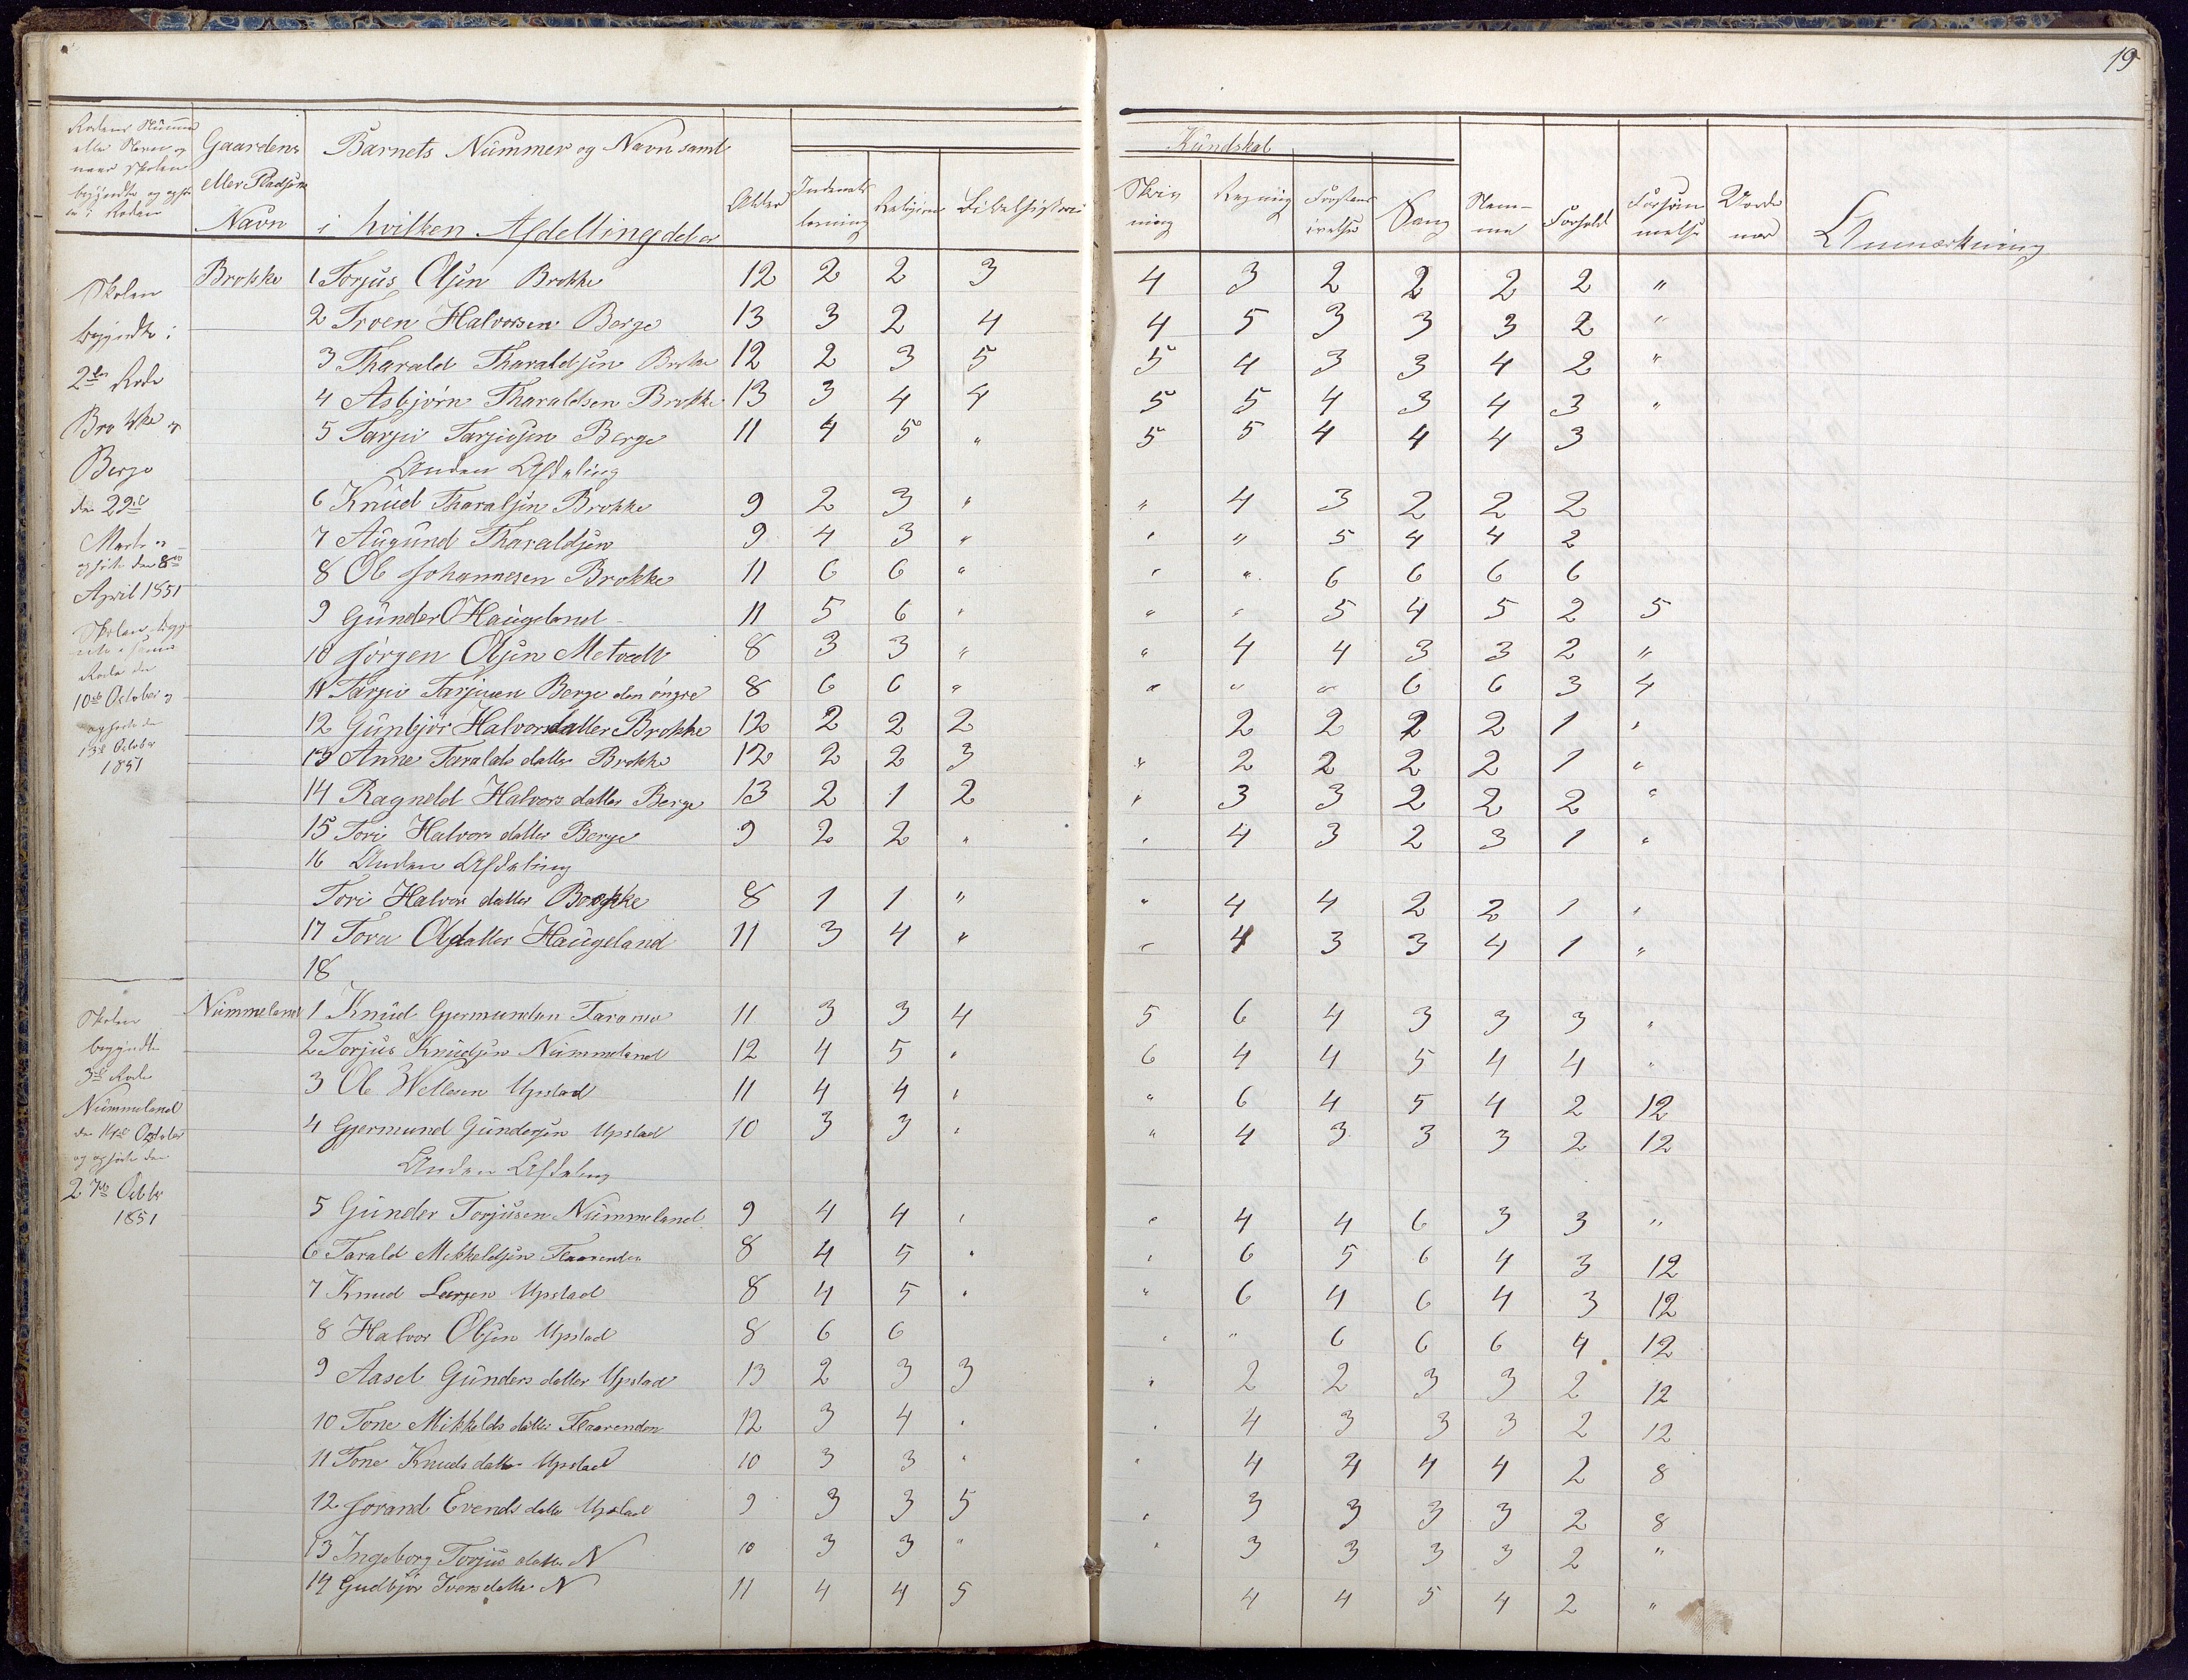 19
Gaardens eller Pladsens Navn
Barnets Nummer og Navn samt i hvilken Afdelling det er
Alder
Indenads læsning
Religion
Bibelhistorie
Kundskab
Skrivning
Regning
Sang
Nemme
Forhold
Forsømmelse
Anmærkning
Skolen begyndte i 2den Rode Brokke og Berge den 29de Marts og ophørte den 8de April 1851
Skolen begyndte i samme Rode den 10de October og ophørte den 13de October 1851
Brokke 1 Torjus Olsen Brokke 12 2 2 3 4 3 2 2 2 2 "
2 Troen Halvorsen Berge 13 3 2 4 4 5 3 3 3 2 "
3 Tharald Tharaldsen Brokke 12 2 3 5 5 4 3 3 4 2 "
4 Asbjørn Tharaldsen Brokke 13 3 4 4 5 5 4 3 4 3 "
5 Tarjei Tarjeisen Berge 11 4 5 " 5 5 4 4 4 3
Anden Afdeling
6 Knud Tharalsen Brokke 9 2 3 " " 4 3 2 2 2
7 Augund Tharaldsen 9 4 3 " " " 5 4 4 2
8 Ole Johannesen Brokke 11 6 6 " " " 6 6 6 6
9 Gunder O Haugeland 11 5 6 " " " 5 4 5 2 5
10 Jørgen Olsen Metvedt 8 3 3 " " 4 4 3 3 2 "
11 Tarjei Tarjeisen Berge den yngre 8 6 6 " " " " 6 6 3 4
12 Gunbjør Halvorsdatter Brokke 12 2 2 2 2 2 2 2 1 "
13 Anne Taralds datter Brokke 12 2 2 3 " 2 2 2 2 1 "
14 Ragneld Halvors datter Berge 13 2 1 2 " 3 3 2 2 2 "
15 Tori Halvors datter Berge 9 2 2 " " 4 3 2 3 1 "
16 Anden Afdeling
Tori Halvors datter Brokke 8 1 1 " " 4 4 2 2 1 "
17 Tora Olsdatter Haugeland 11 3 4 " " 4 3 3 4 1 "
18
Skolen begyndte 3die Rode Nummeland den 14de October og ophørte den 27de Octbr 1851
Nummeland 1 Knud Gjermundsen Faramo 11 3 3 4 5 6 4 3 3 3 "
2 Torjus Knudsen Nummeland 12 4 5 " 6 4 4 5 4 4 "
3 Ole Wellesen Upstad 11 4 4 " " 6 4 5 4 2 12
4 Gjermund Gundersen Upstad 10 3 3 " " 4 3 3 3 2 12
Anden Afdeling
5 Gunder Torjusen Nummeland 9 4 4 " " 4 4 6 3 3 "
6 Tarald Mikkeldsen Flaarenden 8 4 5 " " 6 5 6 4 3 12
7 Knud Larsen Upstad 8 4 5 " " 6 4 6 4 3 12
8 Halvor Olsen Upstad 8 6 6 " " 6 6 6 4 12
9 Aasel Gunders datter Upstad 13 2 3 3 " 2 2 3 3 2 12
10 Tone Mikkelds datter Flaarenden 12 3 4 " " 4 3 3 3 2 12
11 Tone Knuds datter Upstad 10 3 3 " " 4 4 4 4 2 8
12 Jorand Evends datter Upstad 9 3 3 5 " 3 3 3 3 2 8
13 Ingeborg Torjus datter N 10 3 3 " " 3 3 3 3 2 "
14 Gudbjør Ivers datter N 11 4 4 5 4 4 5 4 2 "